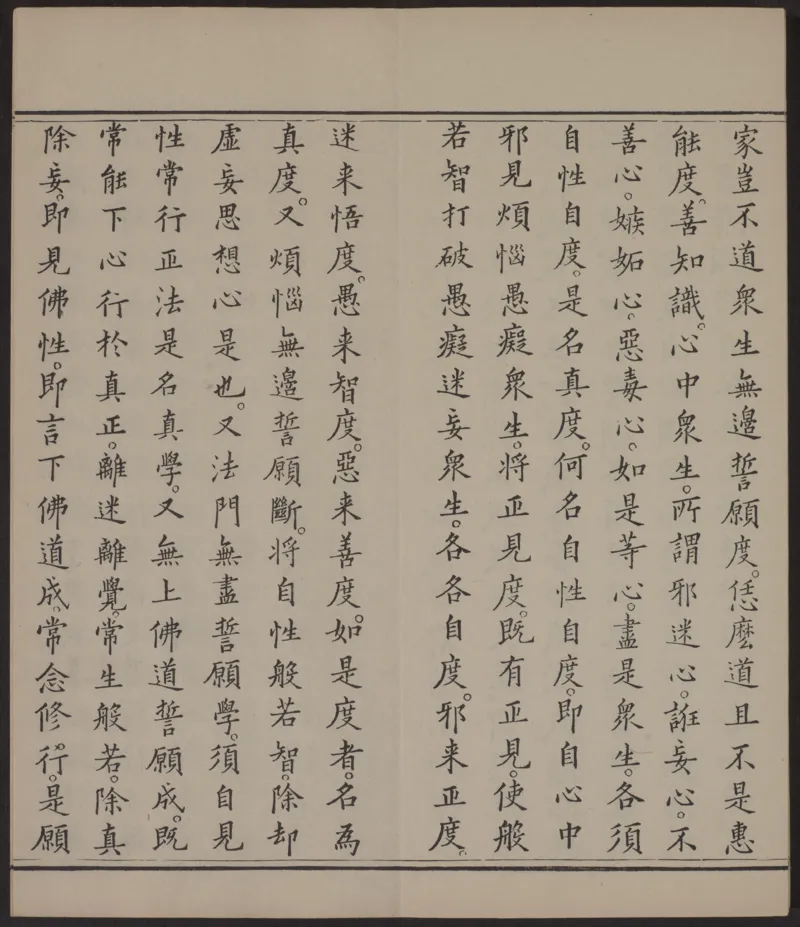 家豈不道衆生無邊誓願度。恁麼道且不是惠
能度。善知識。心中衆生。所謂邪迷心。誑妄心。不
善心。嫉妬心。惡毒心。如是等心。盡是衆生。各須
自性自度。是名真度。何名自性自度。即自心中
邪見煩惱愚癡衆生。將正見度。既有正見。使般
若智打破愚癡迷妄衆生。各各自度。邪来正度。
迷来悟度。愚来智度。惡来善度。如是度者。名為
真度。又煩惱無邊誓願斷。將自性般若智。除却
虛妄思想心是也。又法門無盡誓願學。須自見
性常行正法是名真學。又無上佛道誓願成。既
常能下心行於真正。離迷離覺。常生般若。除真
除妄。即見佛性。即言下佛道成。常念修行。是願